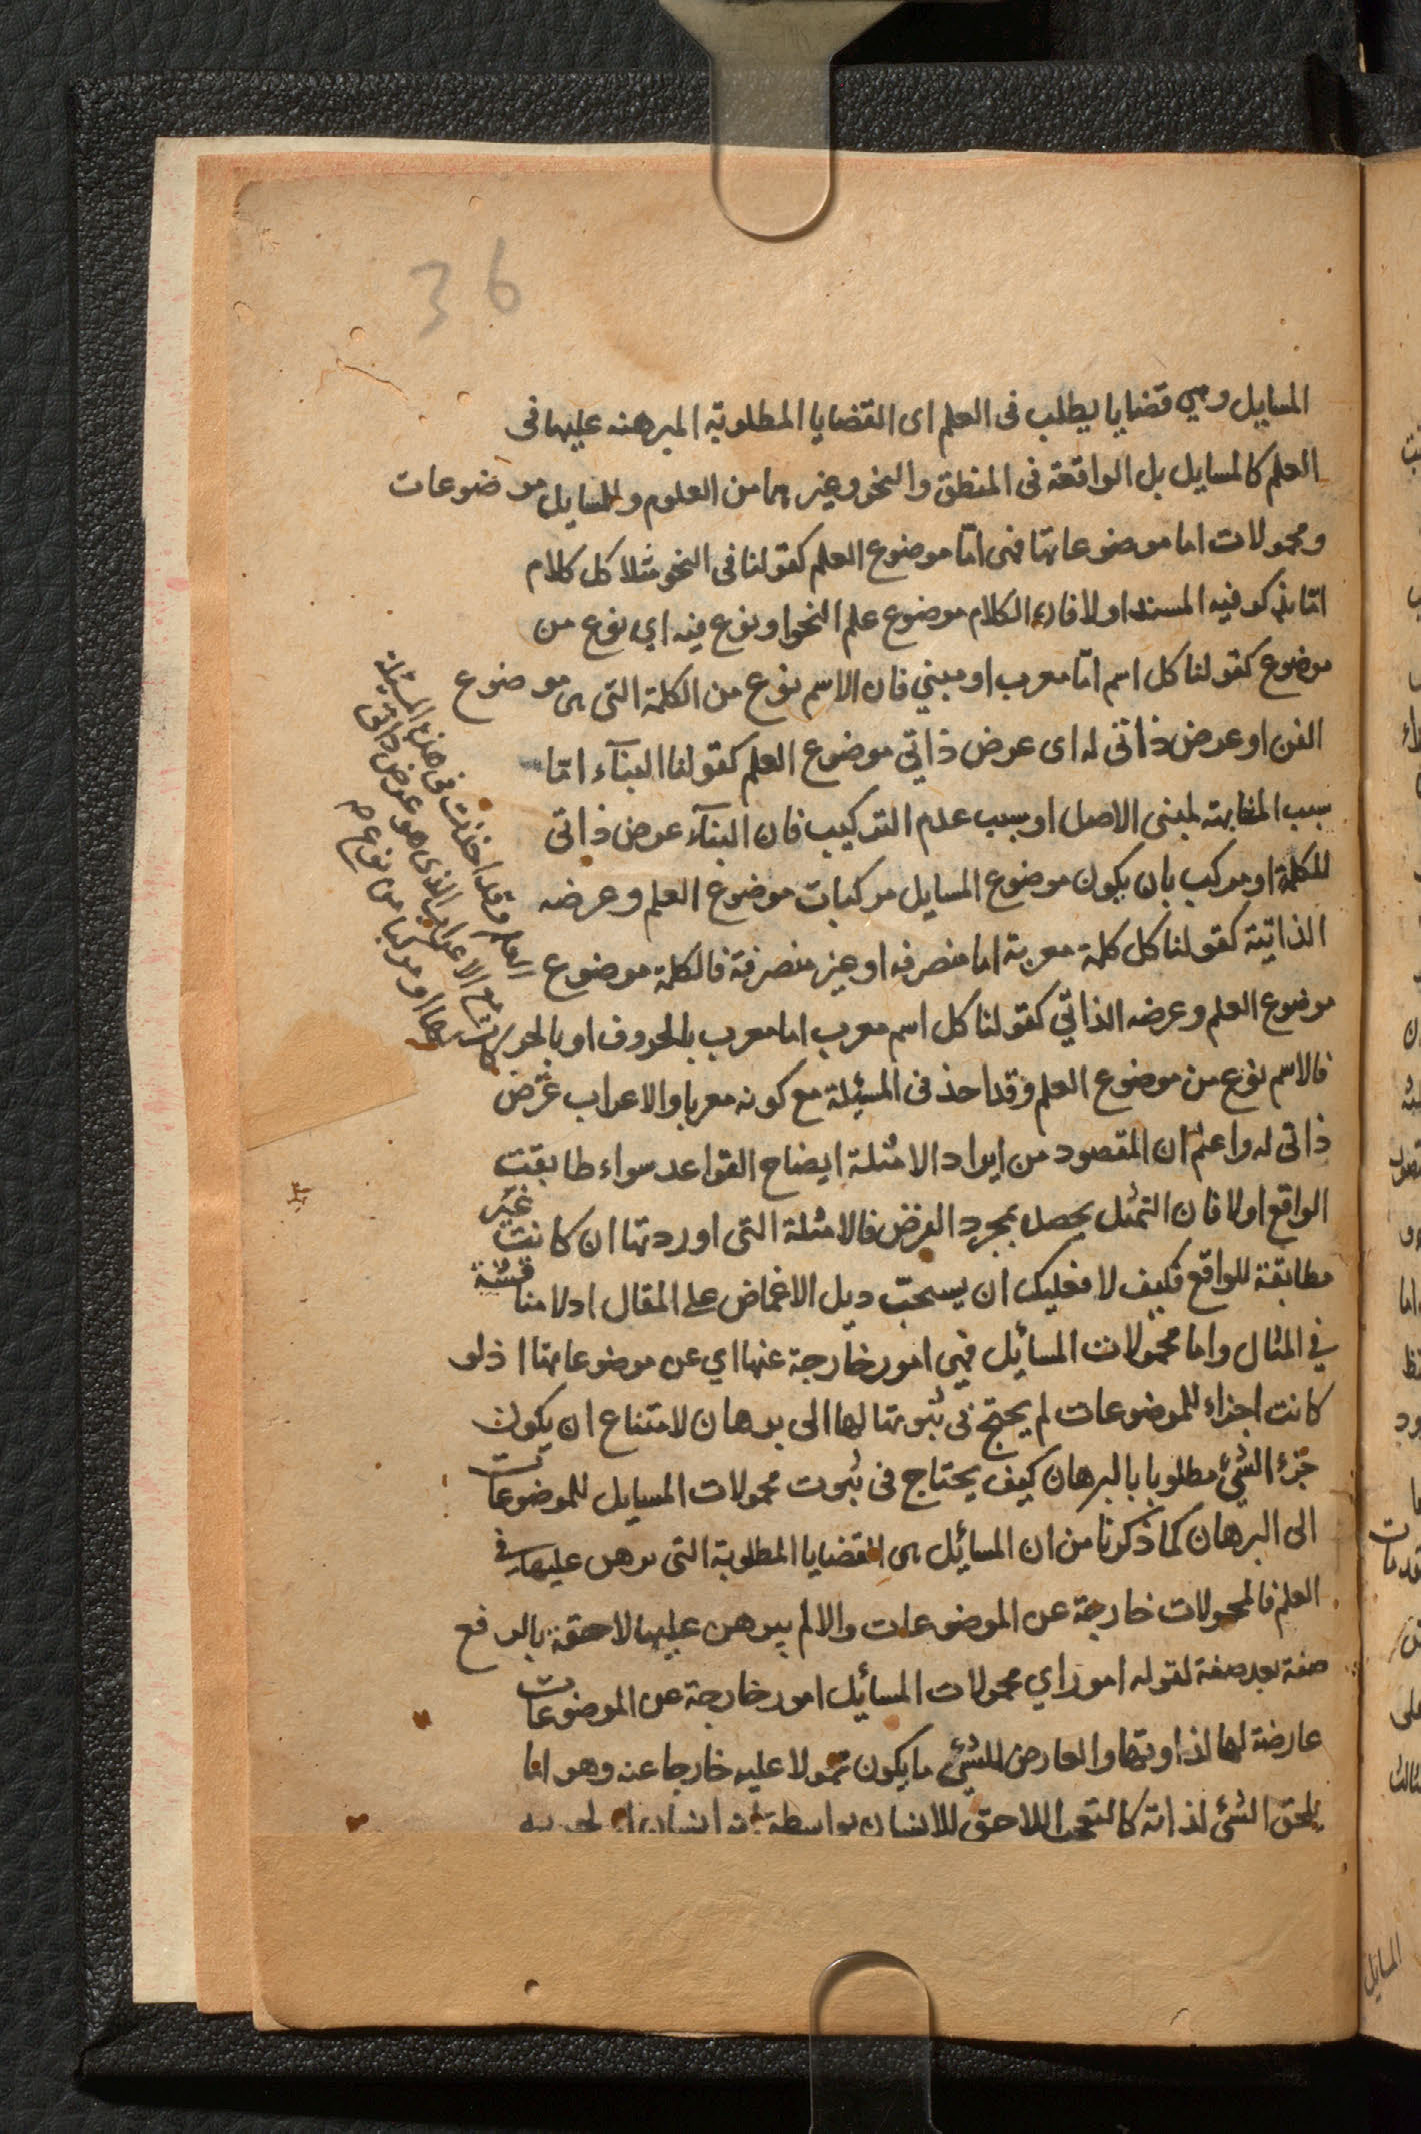 36
المسايل وهي قضايا يطلب فى العلم اى القضايا المطلوبة المبرهنه عليها فى
العلم كالمسايل بل الواقعة فى المنطق والنحو وغيرهما من العلوم وللمسايل موضوعات
ومحمولات اما موضوعاتها فهى امّا موضوع العلم كقولنا فى النحو مثلا كل كلام
امّا يذكر فيه المسند اولا فان الكلام موضوع علم النحو او نوع منه اي نوع من
موضوع كقولنا كل اسم امّا معرب او مبني فان الاسم نوع من الكلمة التى هى موضوع
الفن او عرض ذاتى له اى عرض ذاتي موضوع العلم كقولنا البنآء امّا
سبب المشابهته لمبنى الاصل او بسبب عدم التركيب فان البنآء عرض ذاتى
للكلمة او مركب بان يكون موضوع المسايل مركبات موضوع العلم وعرضه
الذاتيته كقولنا كل كلمة معربة اما منصرفه او غير منصرفة فالكلمة موضوع
موضوع العلم وعرضه الذاتّي كقولنا كل اسم معرب اما معرب بالحروف او بالحركات
فالاسم نوع من موضوع العلم وقد احذ فى المسئلة مع كونه معربا والاعراب عرض
ذاتى له واعلم ان المقصود من ايراد الامثلة ايضاح القواعد سواء طابقت
الواقع اولا فان التمثل يحصل بمجرد الفرض فالامثلة التى اوردتها ان كانت غير
مطابقة للواقع فكيف لا فعليك ان يسحبّ ديل الاغماض على المقال اد لا مناقشة
في المثال واما محمولات المسائيل فهى امور خارجة عنها اي عن موضوعاتها اذ لو
كانت اجزاء للموضوعات لم يحتج فى ثبوتها لها الى برهان لامتناع ان يكون
جزء الشئ مطلوبا بالبرهان كيف يحتاج فى ثبوت محمولات المسايل للموضوعات
الى البرهان كما ذكرنا من ان المسائيل هى القضايا المطلوبة التى برهن عليها فى
العلم فالمحمولات خارجة عن الموضوعات والا لم يبرهن عليها لاحقة بالرفع
صفة بعد صفة لقوله امور اي محمولات المسائيل امور خارجة عن الموضوعات
عارضة لها لذاوتها والعارض للشئ ما يكون محمولا عليه خارجا عنه وهو اما
يلحق الشئ لذاته كالتعجب اللاحق للانسان بواسطة انه انسان
العلم وقد اخذت فى هذه المسئلة
مع الاعراب الذى هو عرض ذاتى
او مركبا من نوع
المسايل